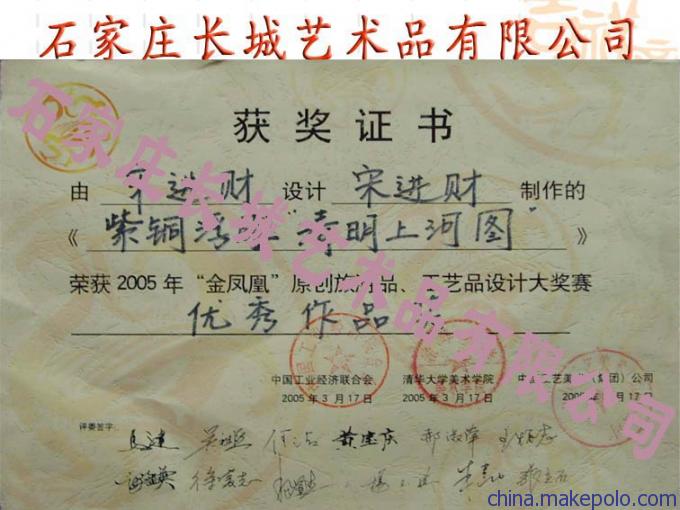 石家庄长城艺术品有限公司
获奖证书
由 宋进财 设计 宋进财 制作的
《紫铜浮雕"清明上河图"》
荣获2005年"金凤凰"原创旅游品、工艺品设计大奖赛
优秀作品奖
中国工业经济联合会 清华大学美术学院 中国工艺美术(集团)公司
2005年3月17日 2005年3月17日 2005年3月17日
评委签字:
石家庄长城艺术品有限公司
china.makepolo.com